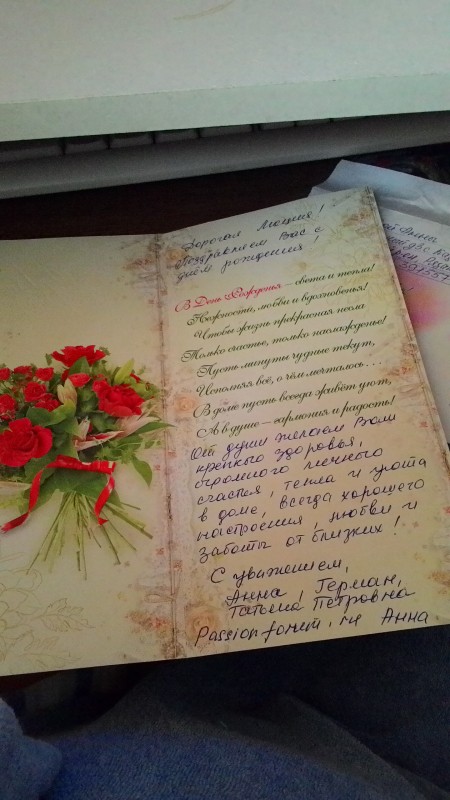 Дорогая Люция!
Поздравляем Вас с
днём рождения!
В День Рожденья – света и тепла!
Нежности, любви и вдохновенья!
Чтобы жизнь прекрасная несла
Только счастье, только наслажденье!
Пусть минуты чудные текут,
Исполняя всё, о чём мечталось...
В доме пусть всегда живёт уют,
А в душе – гармония и радость!
От души желаем Вам
крепкого здоровья,
огромного личного
счастья, тепла и уюта
в доме, всегда хорошего
настроения, любви и
заботы от близких!
С уважением,
Анна, Герман,
Татьяна Петровна
Passionforum.ru Анна
Анна